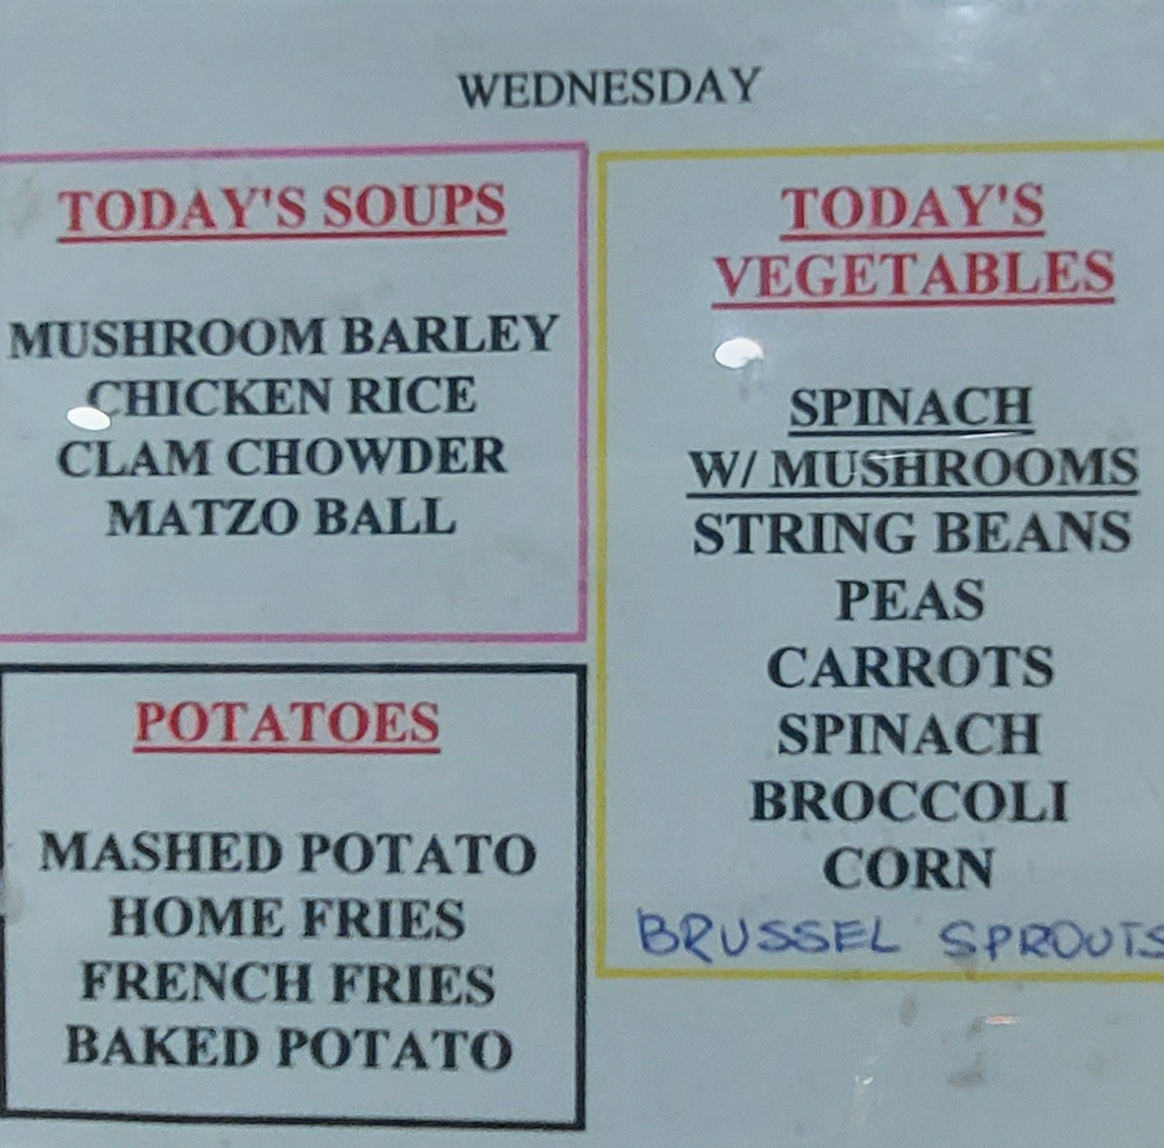 WEDNESDAY
TODAY'S SOUPS
MUSHROOM BARLEY
CHICKEN RICE
CLAM CHOWDER
MATZO BALL
POTATOES
MASHED POTATO
HOME FRIES
FRENCH FRIES
BAKED POTATO
TODAY'S
VEGETABLES
SPINACH
W/ MUSHROOMS
STRING BEANS
PEAS
CARROTS
SPINACH
BROCCOLI
CORN
BRUSSEL SPROUTS